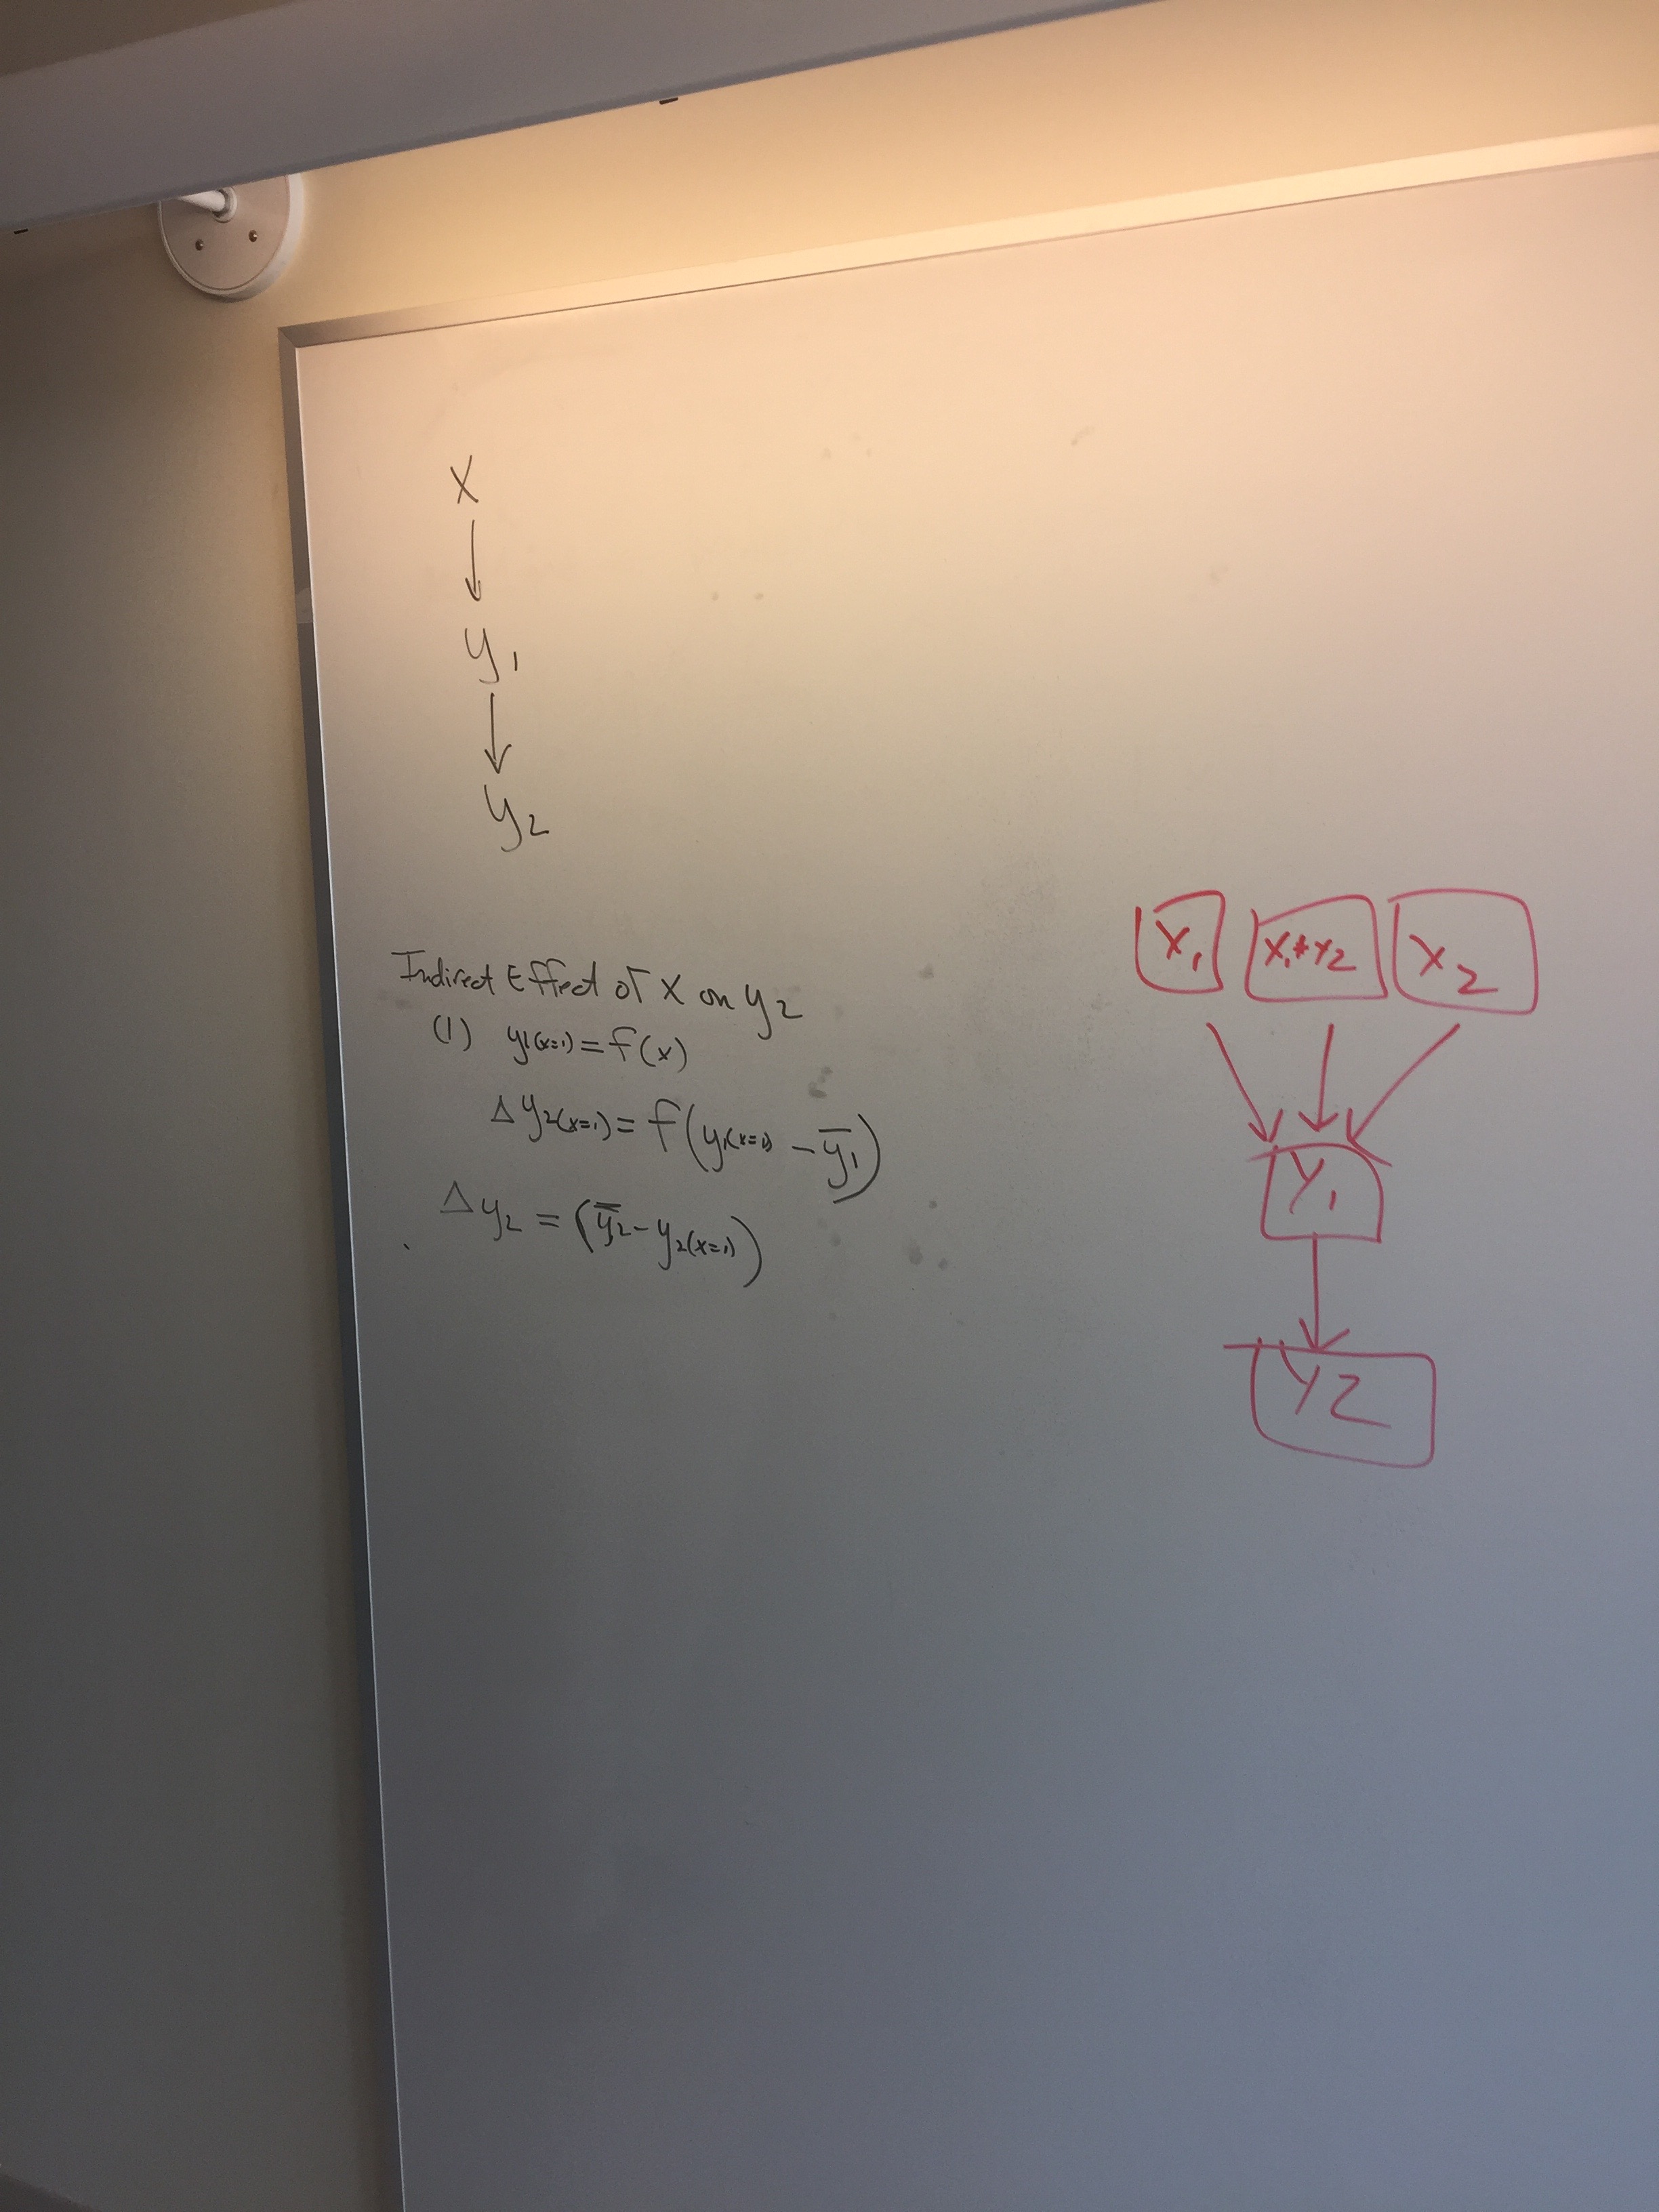 X
↓
y₁
↓
y₂
Indirect Effect of X on y₂
(1) y₁(x=1) = f(x)
Δy₂(x=1) = f(y₁(x=1) - y̅₁)
Δy₂ = (y̅₂ - y₂(x=1))
X₁ X₁+Y₂ X₂
Y₁
Y2